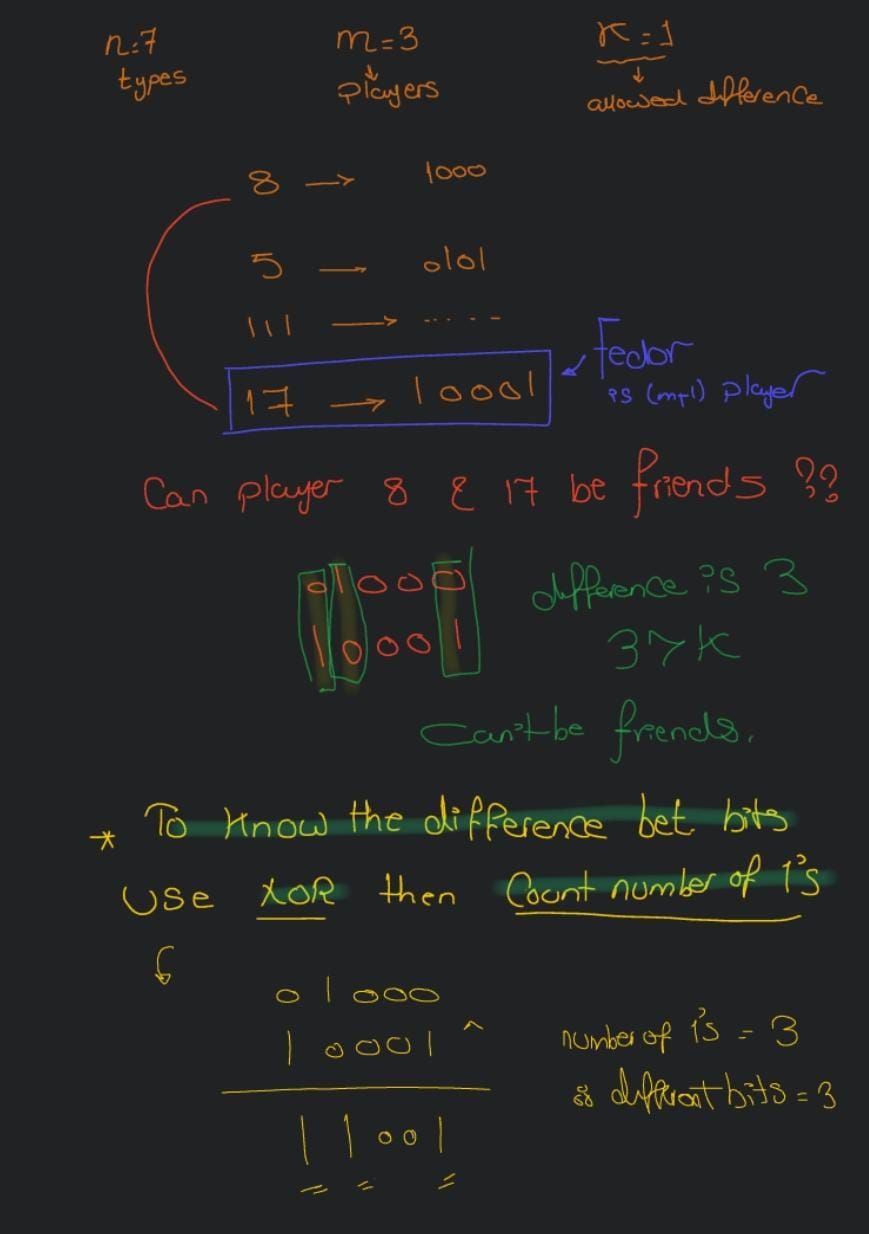 n=7 m=3 K=1
types players allowed difference
8 → 1000
5 → 0101
111 → ......
17 → 10001
Fedor
is (m+1) player
Can player 8 & 17 be friends ??
01000
10001
difference is 3
3>K
Can't be friends.
* To know the difference bet. bits
Use XOR then Count number of 1's
01000
10001 ^
11001
number of 1's = 3
different bits = 3